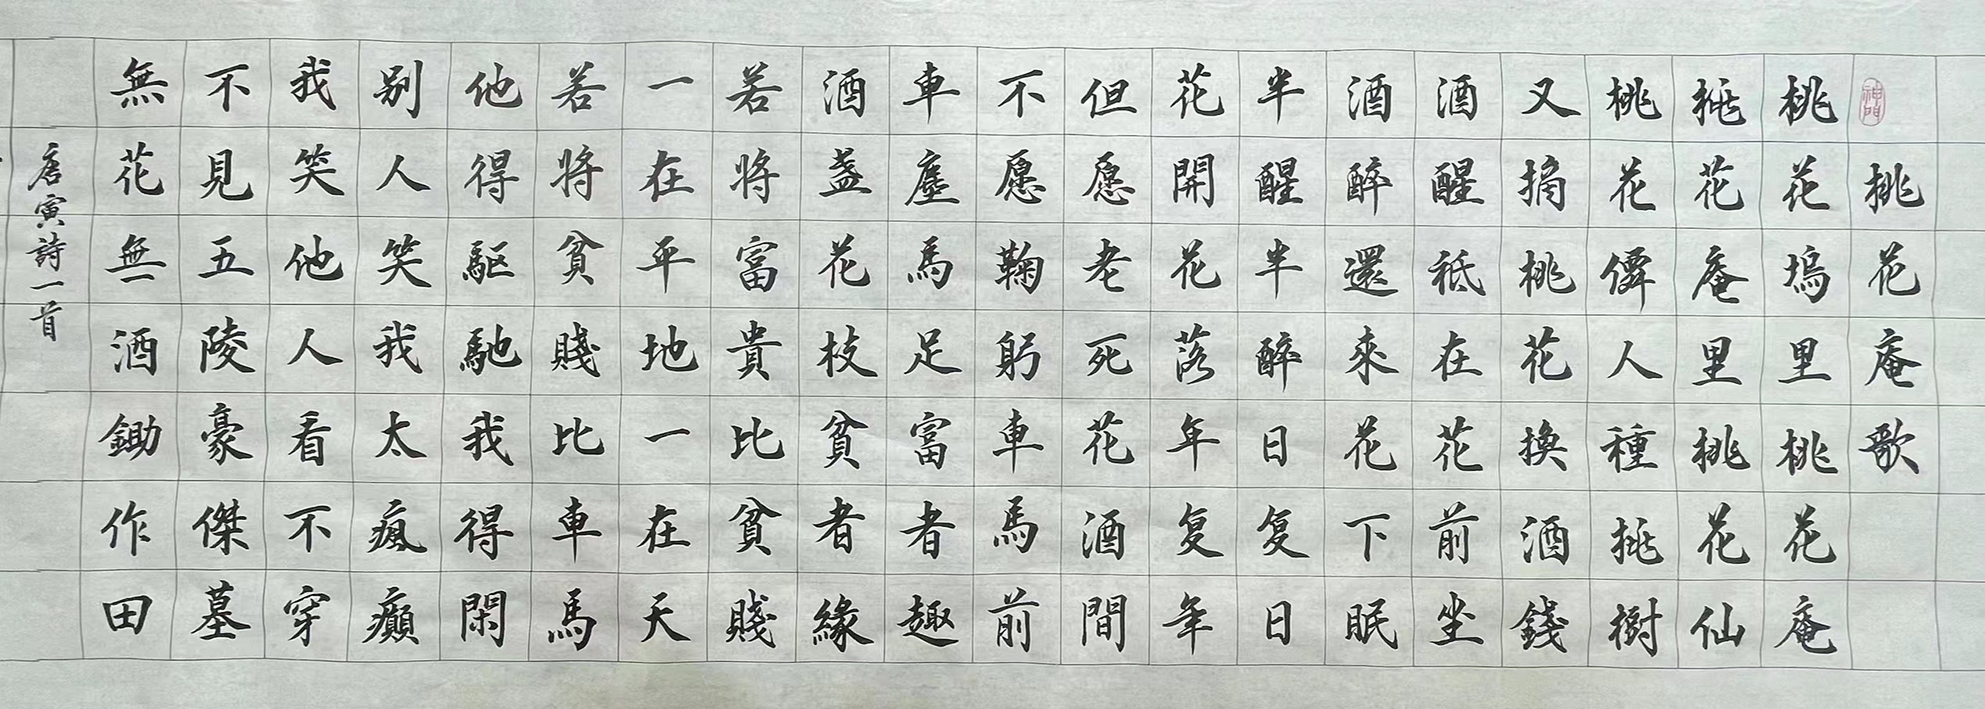 桃花庵歌
桃花塢里桃花庵
桃花庵里桃花仙
桃花僊人種桃樹
又摘桃花換酒錢
酒醒祗在花前坐
酒醉還來花下眠
半醒半醉日复日
花開花落年复年
但愿老死花酒間
不愿鞠躬車馬前
車塵馬足富者趣
酒盞花枝貧者緣
若將富貴比貧賤
一在平地一在天
若將貧賤比車馬
他得驅馳我得閑
别人笑我太瘋癲
我笑他人看不穿
不見五陵豪傑墓
無花無酒鋤作田
唐寅詩一首